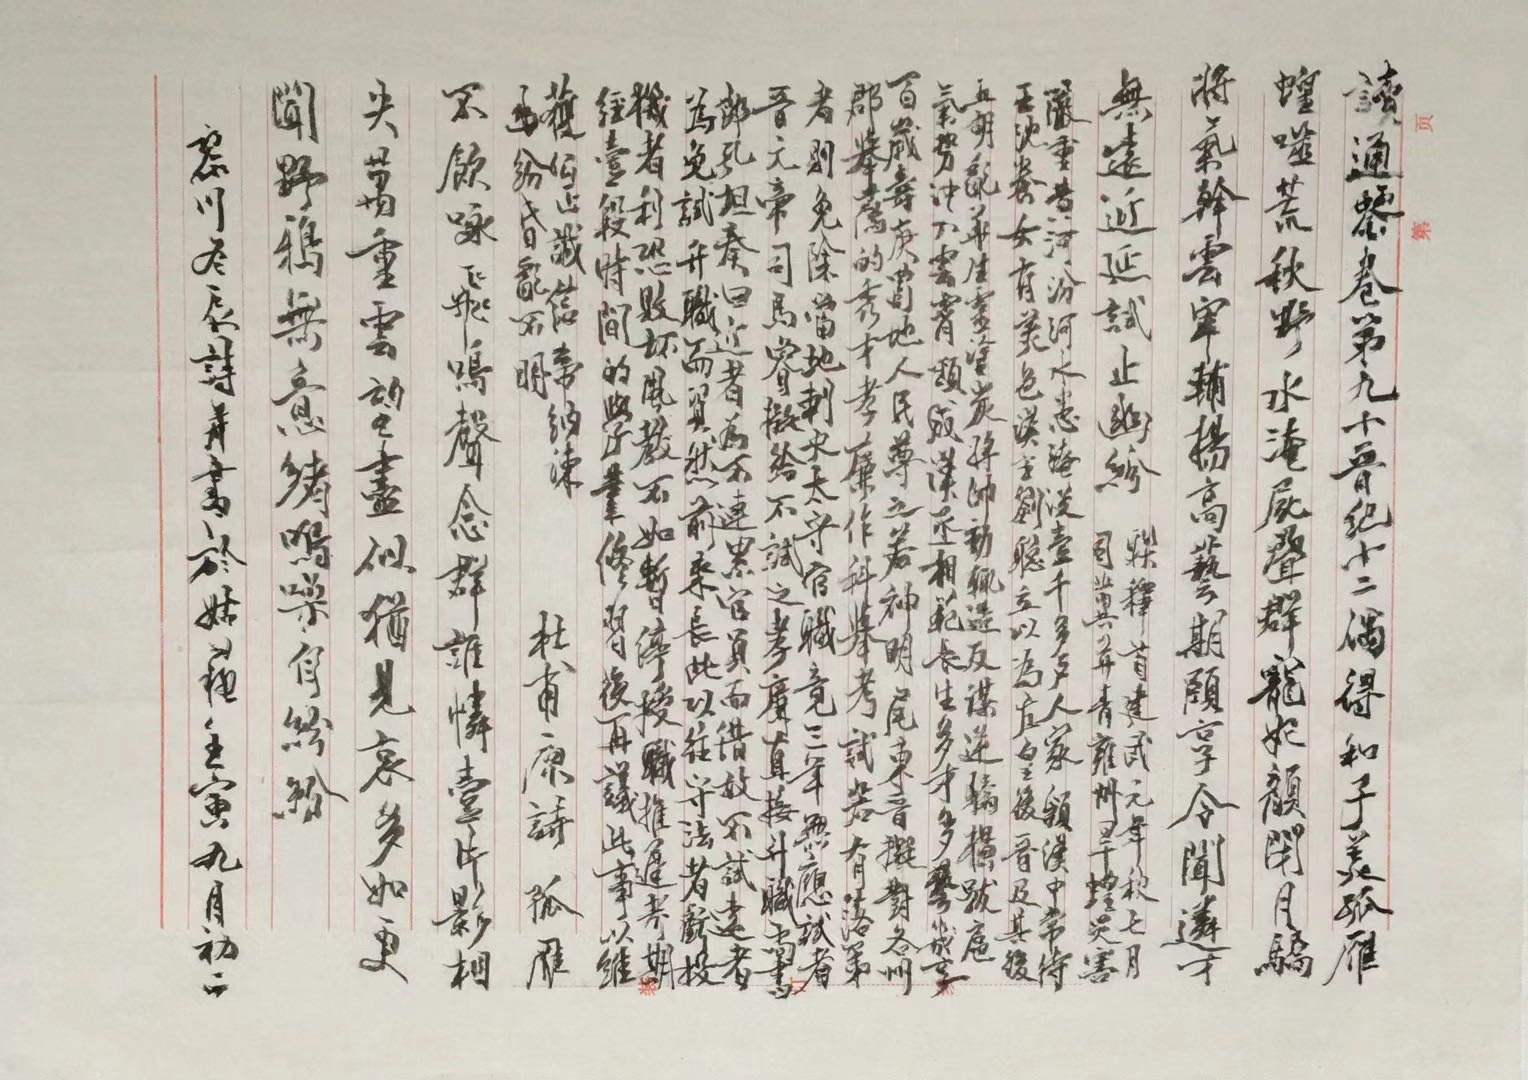 讀通鑒卷第九十晉紀十二偶得和子美孤雁
蝗噬荒秋野水淹屍聲群寵妃顏閉月驕
將氣幹雲宰輔揚高藝期頤享令聞遴才
無遠近延試止幽紛
联釋首建武元年秋七月
司冀并青雍州旱蝗災害
嚴重昔河汾河水患淹没壹千多户人家 類漢中常侍
王沈養女有美色漢主劉聰立以為左皇後晉及其後
五胡亂華生靈塗炭將帥動輒造反謀逆驕橫跋扈
氣勢冲入雲霄 成漢丞相範長生多才多藝
百歲壽庚蜀地人民尊之若神明尾束音擬對各州
郡舉薦的秀才孝廉作科舉考試若有落第
者則免除當地刺史太守官職竟三年無應試者
晉元帝司馬睿擬給不試之孝廉直接升職尚書
郎孔坦奏曰近者為不連累官員而借故不試遠者
為免試升職而翼然前來長此以往守法者虧投
機者利恐敗坏風教不如暫停授職推遲考期
經壹段時間的學業修習後再議此事以維
護 帝納諫
紛 昏亂不明
杜甫原詩 孤雁
不飲啄 飛鳴聲念群誰憐壹片影相
失萬重雲望盡似猶見哀多如更
聞野鴉無意緒鳴噪自紛紛
川 辰詩并書於姑蘇壬寅九月初二
页
第